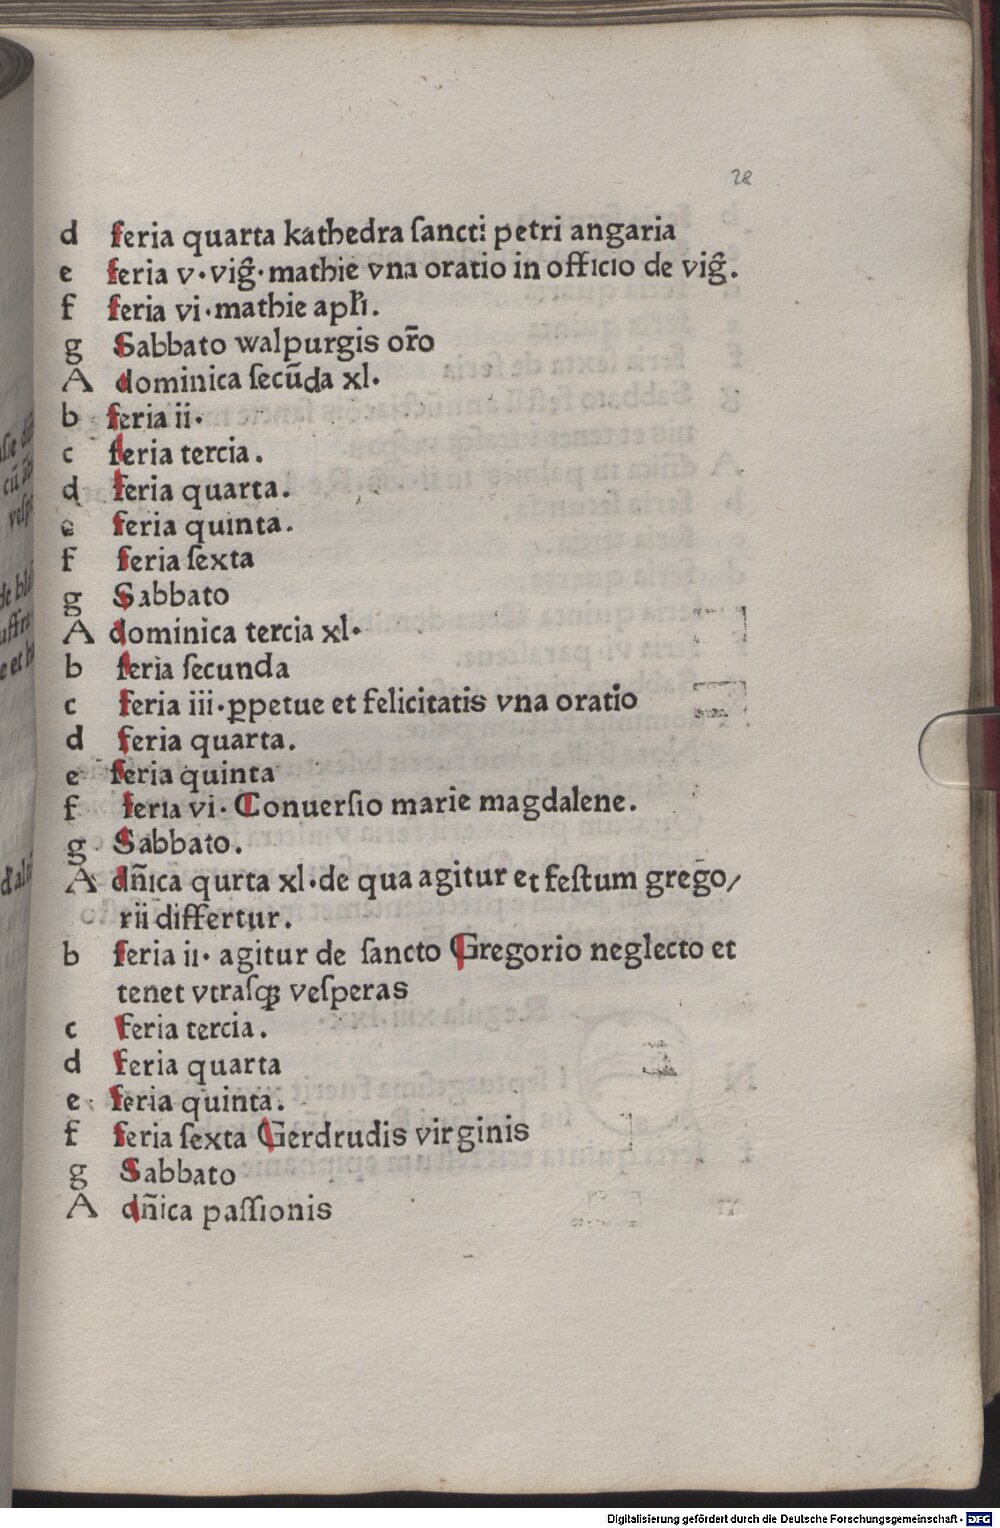 28
d feria quarta kathedra ſancti petri angaria
e feria v·vig̃·mathie vna oratio in officio de vig̃.
f feria vi·mathie apl̃i.
g Sabbato walpurgis or̃o
A dominica ſecũda xl.
b feria ii·
c feria tercia.
d feria quarta.
e feria quinta.
f feria ſexta
g Sabbato
A dominica tercia xl·
b feria ſecunda
c feria iii·ꝑpetue et felicitatis vna oratio
d feria quarta.
e feria quinta
f feria vi·Conuerſio marie magdalene.
g Sabbato.
A dñica qurta xl·de qua agitur et feſtum grego/
rii differtur.
b feria ii· agitur de ſancto Gregorio neglecto et
tenet vtraſqꝫ veſperas
c feria tercia.
d feria quarta
e feria quinta.
f feria ſexta Gerdrudis virginis
g Sabbato
A dñica paſſionis
Digitalisierung gefördert durch die Deutsche Forschungsgemeinschaft - DFG